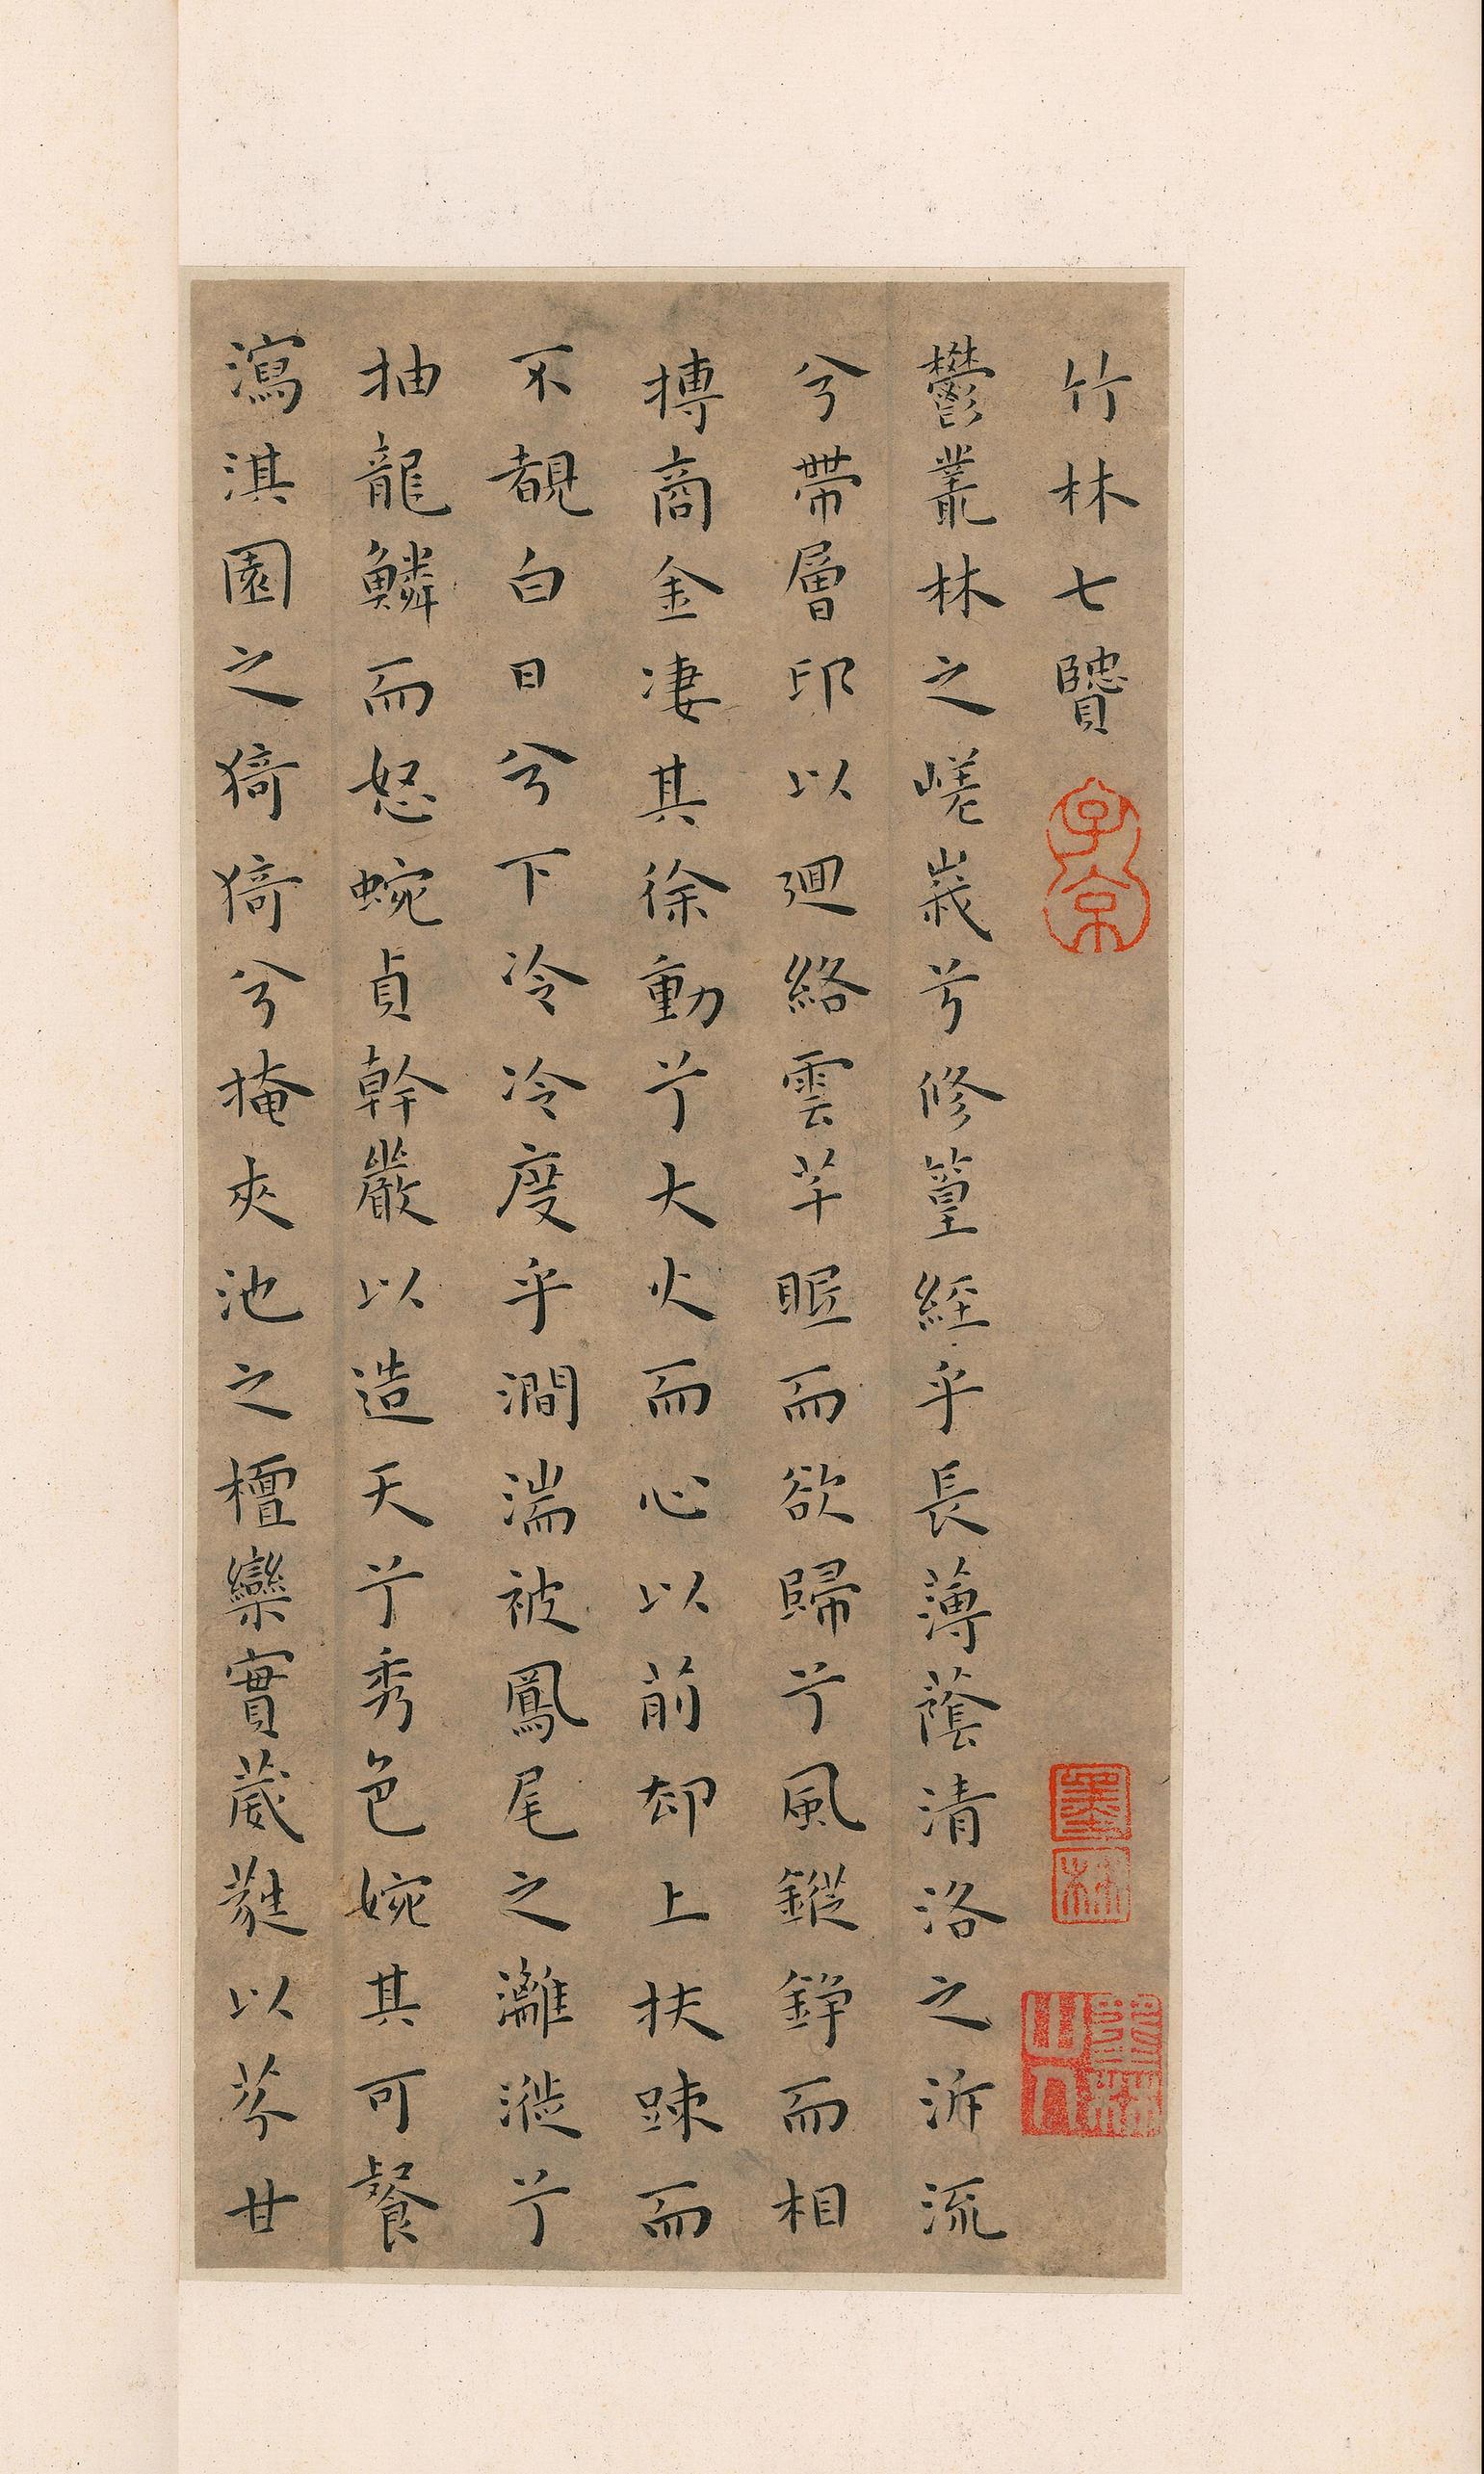 竹林七賢
鬱叢林之嵯峩兮修篁經乎長薄蔭清洛之泝流
兮帶層邙以迴絡雲芊眠而欲歸兮風鏦錚而相
搏商金凄其徐動兮大火而心以前却上扶踈而
不覩白日兮下泠泠度乎澗湍被鳳尾之灕漇兮
抽龍鱗而怒蜿貞幹巖以造天兮秀色婉其可餐
瀉淇園之猗猗兮掩夾池之檀欒實葳蕤以芬甘
子京
墨林
墨林山人